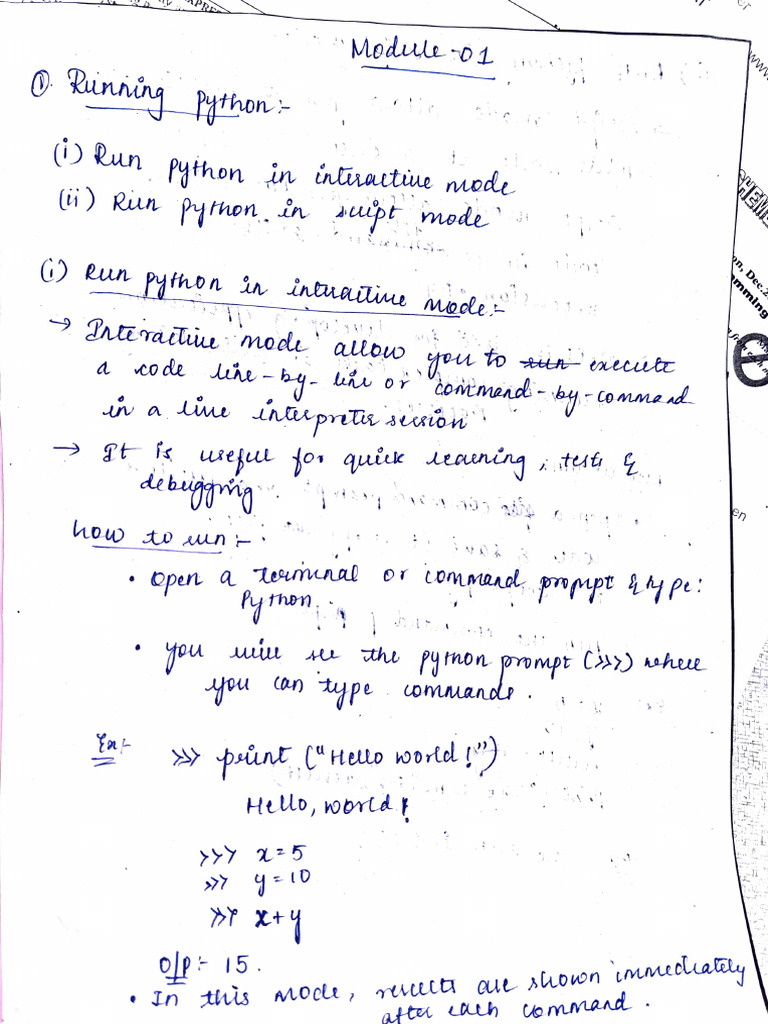 Module-01
① Running python:-
(i) Run python in interactive mode
(ii) Run python in script mode
(i) Run python in interactive mode:-
→ Interactive mode allow you to run execute
a code line-by-line or command-by-command
in a line interpreter session
→ It is useful for quick learning, tests &
debugging
how to run:-
• open a terminal or command prompt & type:
Python
• you will see the python prompt (>>>) where
you can type commands.
Ex:- >>> print ("Hello world!")
Hello, world!
>>> x=5
>>> y=10
>>> x+y
O/P:- 15.
• In this mode, results are shown immediately
after each command.
on, Dec.2
mming
en